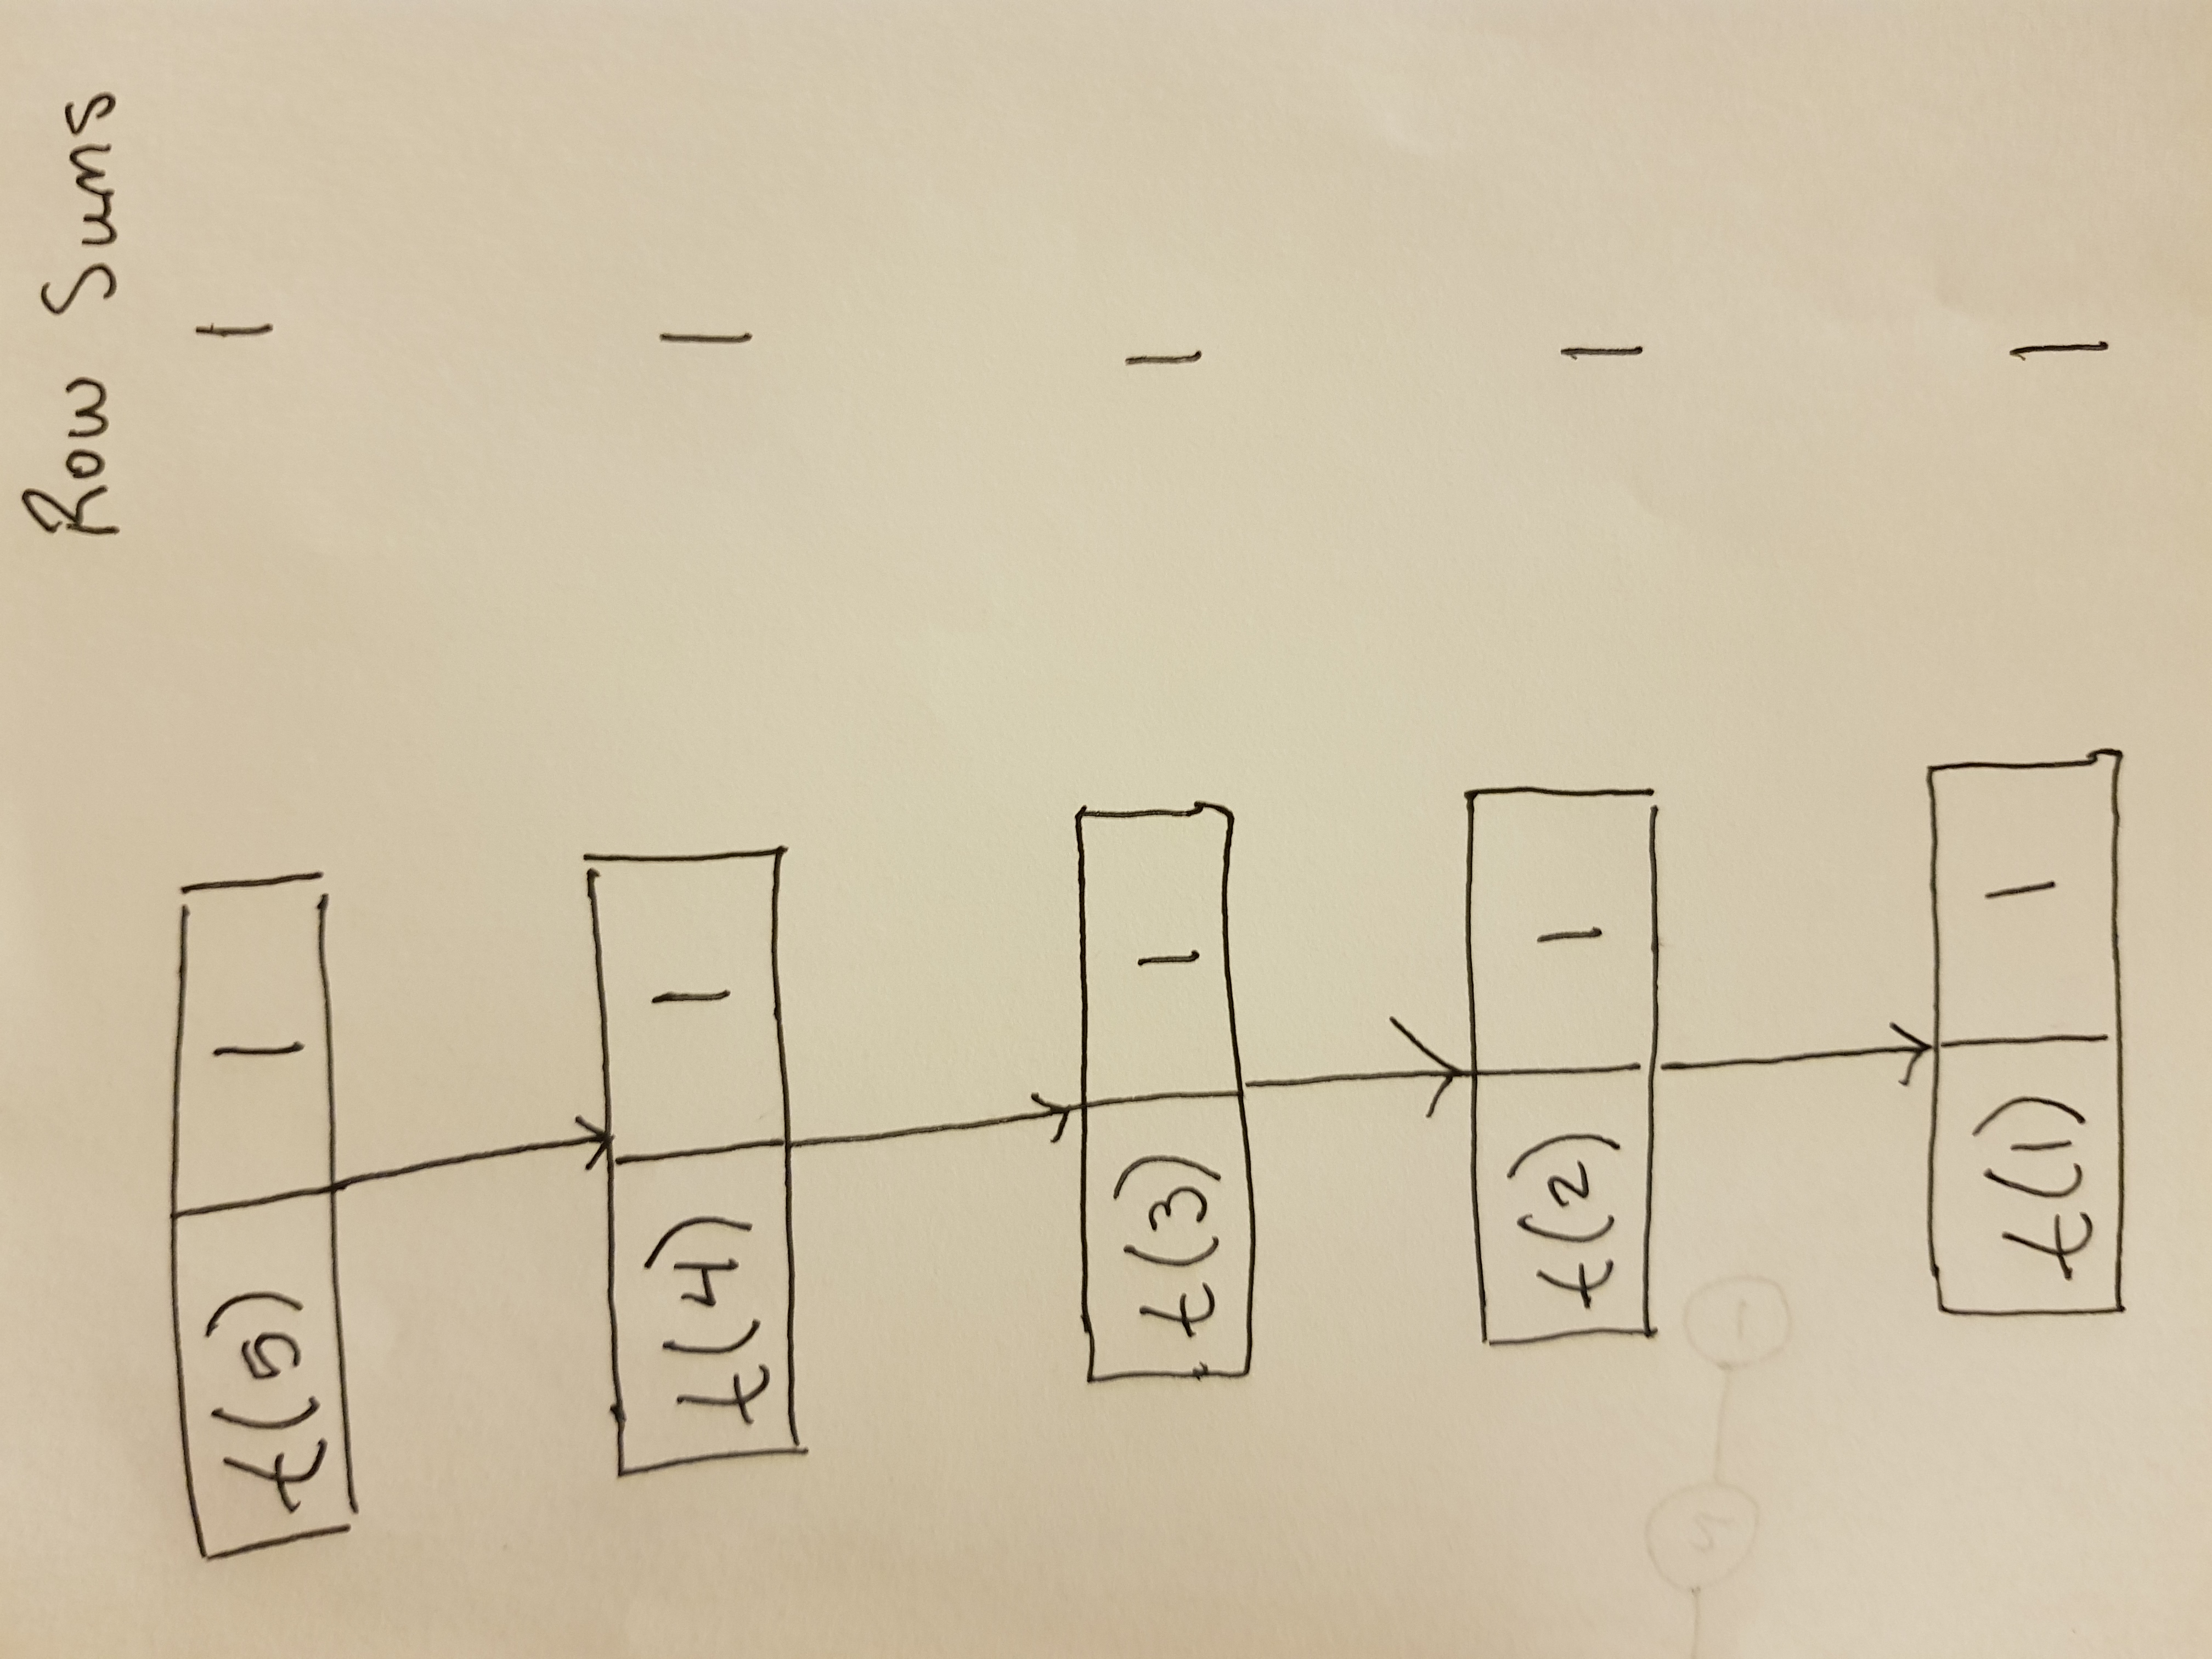 Row Sums
t(5) 1 1
t(4) 1 1
t(3) 1 1
t(2) 1 1
t(1) 1 1